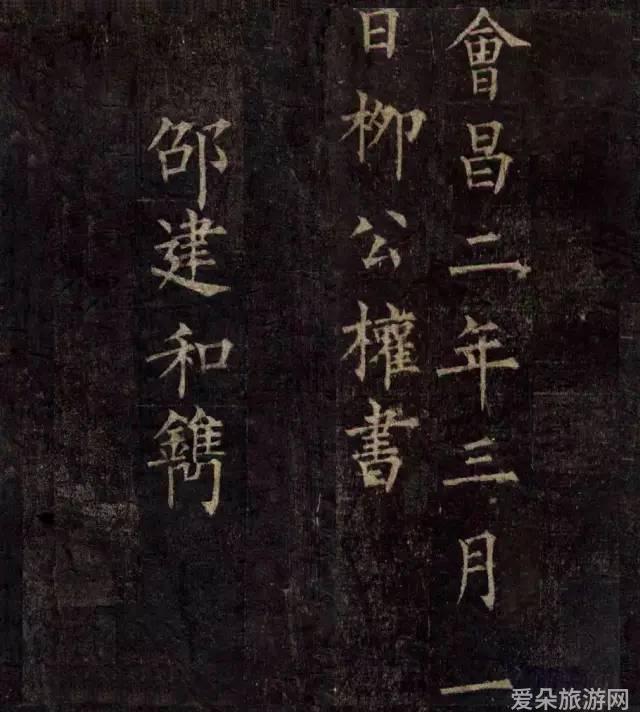 會昌二年三月一
日柳公權書
邵建和鐫
爱朵旅游网